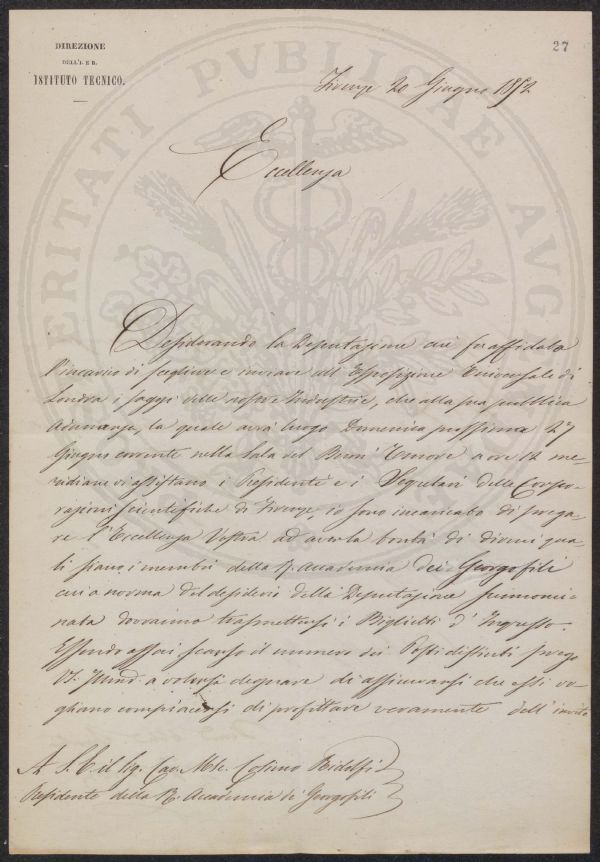 27
DIREZIONE
DELL'I. E R.
ISTITUTO TECNICO.
Firenze 20 Giugno 1852
Eccellenza
Desiderando la Deputazione cui fu affidato
l'incarico di scegliere e inviare all'Esposizione Universale di
Londra i saggi delle nostre Industrie, che alla sua pubblica
Adunanza, la quale avrà luogo Domenica prossima 27
Giugno corrente nella Sala del Buon' Umore a ore 12 me-
ridiane vi assistano i Presidenti e i Segretari delle Corpo-
razioni scientifiche di Firenze, io sono incaricato di prega-
re l'Eccellenza Vostra ad aver la bontà di dirmi qua-
li siano i membri della R. Accademia dei Georgofili
cui a norma del desiderio della Deputazione summomi-
nata dovranno trasmettersi i Biglietti d'Ingresso.
Essendo assai scarso il numero dei Posti distinti prego
a volersi degnare di assicurarsi che essi vo-
gliano compiacersi di profittare veramente dell'invito
A S. E. il Sig. Cav. Mse. Cosimo Ridolfi
Presidente della R. Accademia di Georgofili
PUBLICAE